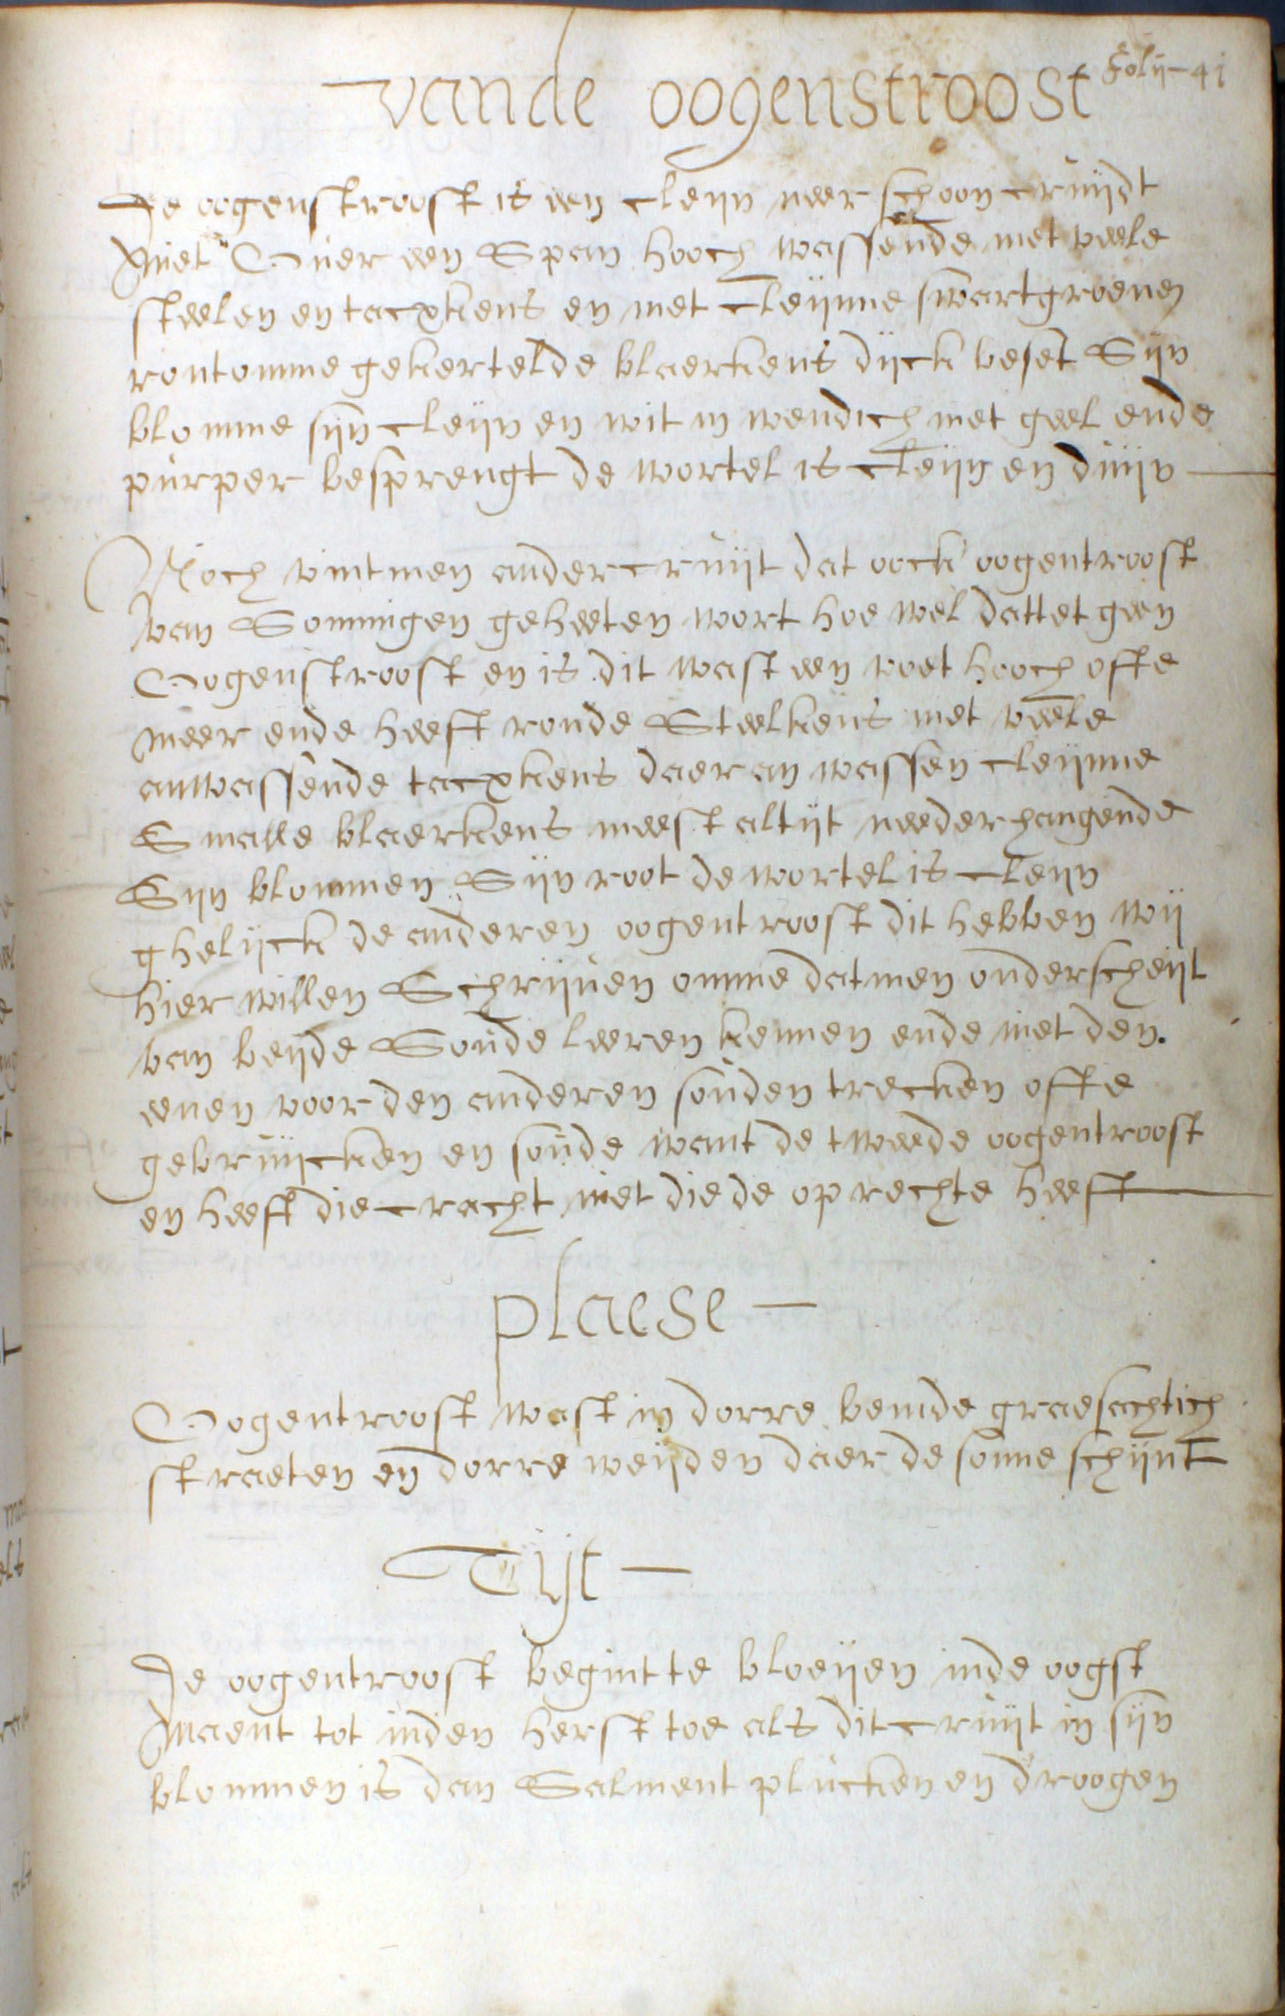 Folij - 41
vande oogenstroost
De oogenstroost is een cleijn neer schoon cruijdt
Niet Over een Span hooch wassende met veele
steelen en tacxkens en met cleijnne swartgroenen
rontomme gekertelde blaerkens dijck beset Sijn
blomme sijn cleijn en wit in wendich met geel ende
purper besprengt de wortel is cleijn en duijn
Noch vintmen ander cruijt dat oock oogentroost
van Sommigen geheeten wort hoe wel dattet geen
Oogenstroost en is dit wast een voet hooch ofte
meer ende heeft ronde Steelkens met veele
anwassende tacxkens daer an wassen cleijnne
Smalle blaerkens meest altijt neederhangende
Sijn blommen Sijn root de wortel is cleijn
ghelijck de anderen oogentroost dit hebben wij
hier willen Schrijven omme datmen onderscheijt
van beijde Soude leeren kennen ende niet den.
eenen voor den anderen souden trecken ofte
gebruijcken en soude want de tweede oogentroost
en heeft die cracht niet die de oprechte heeft
plaese
Oogentroost wast in dorre bemde graesachtich
straeten en dorre weijden daer de sonne schijnt
Tijt
De oogentroost begint te bloeijen inde oogst
Maent tot inden herfst toe als dit cruijt in sijn
blommen is dan Salment plucken en droogen